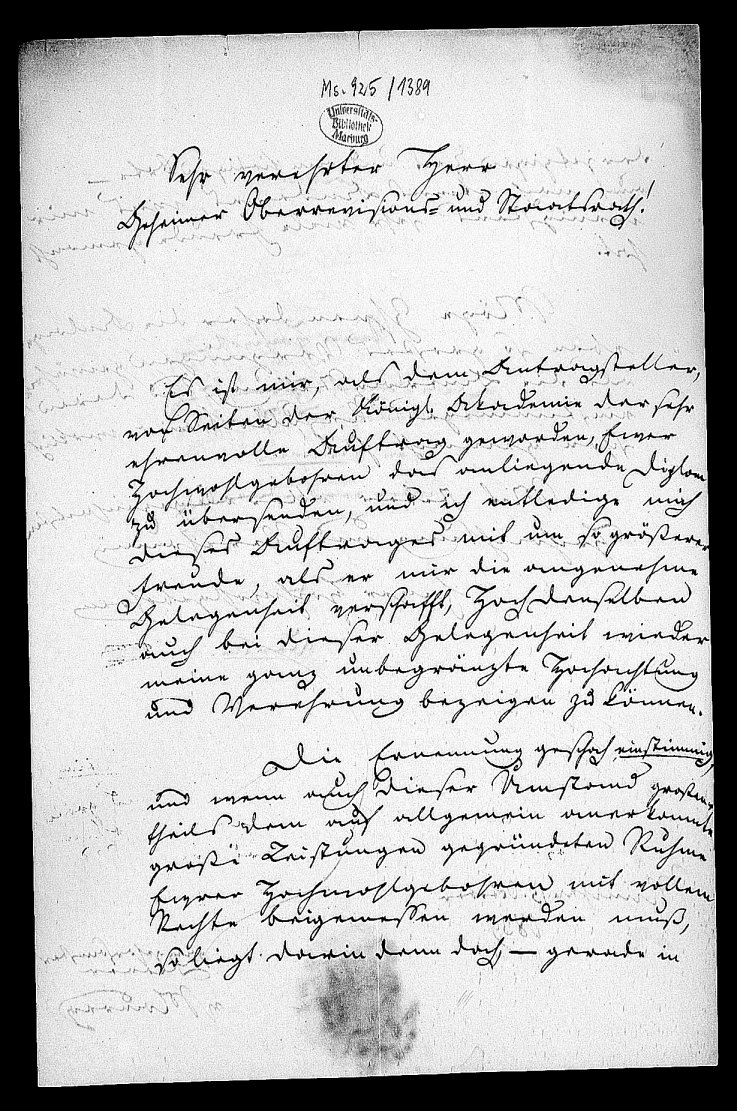 Ms. 925/1389
Universitäts-
Bibliothek
Marburg
Sehr verehrter Herr
Geheimer Oberrevisions- und Staatsrath!
Es ist mir, als dem Antragsteller,
von Seiten der Königl. Akademie der sehr
ehrenvolle Auftrag geworden, Ewer
Hochwohlgebohren das anliegende Diplom
zu übersenden, und ich entledige mich
dieses Auftrages mit um so größerer
Freude, als er mir die angenehme
Gelegenheit verschafft, Hochdenselben
auch bei dieser Gelegenheit wieder
meine ganz unbegränzte Hochachtung
und Verehrung bezeigen zu können.
Die Ernennung geschah einstimmig,
und wenn auch dieser Umstand großen
theils dem auf allgemein anerkannte
große Leistungen gegründeten Ruhme
Ewrer Hochwohlgebohren mit vollem
Rechte beigemessen werden muß,
so liegt darin denn doch, — gerade in